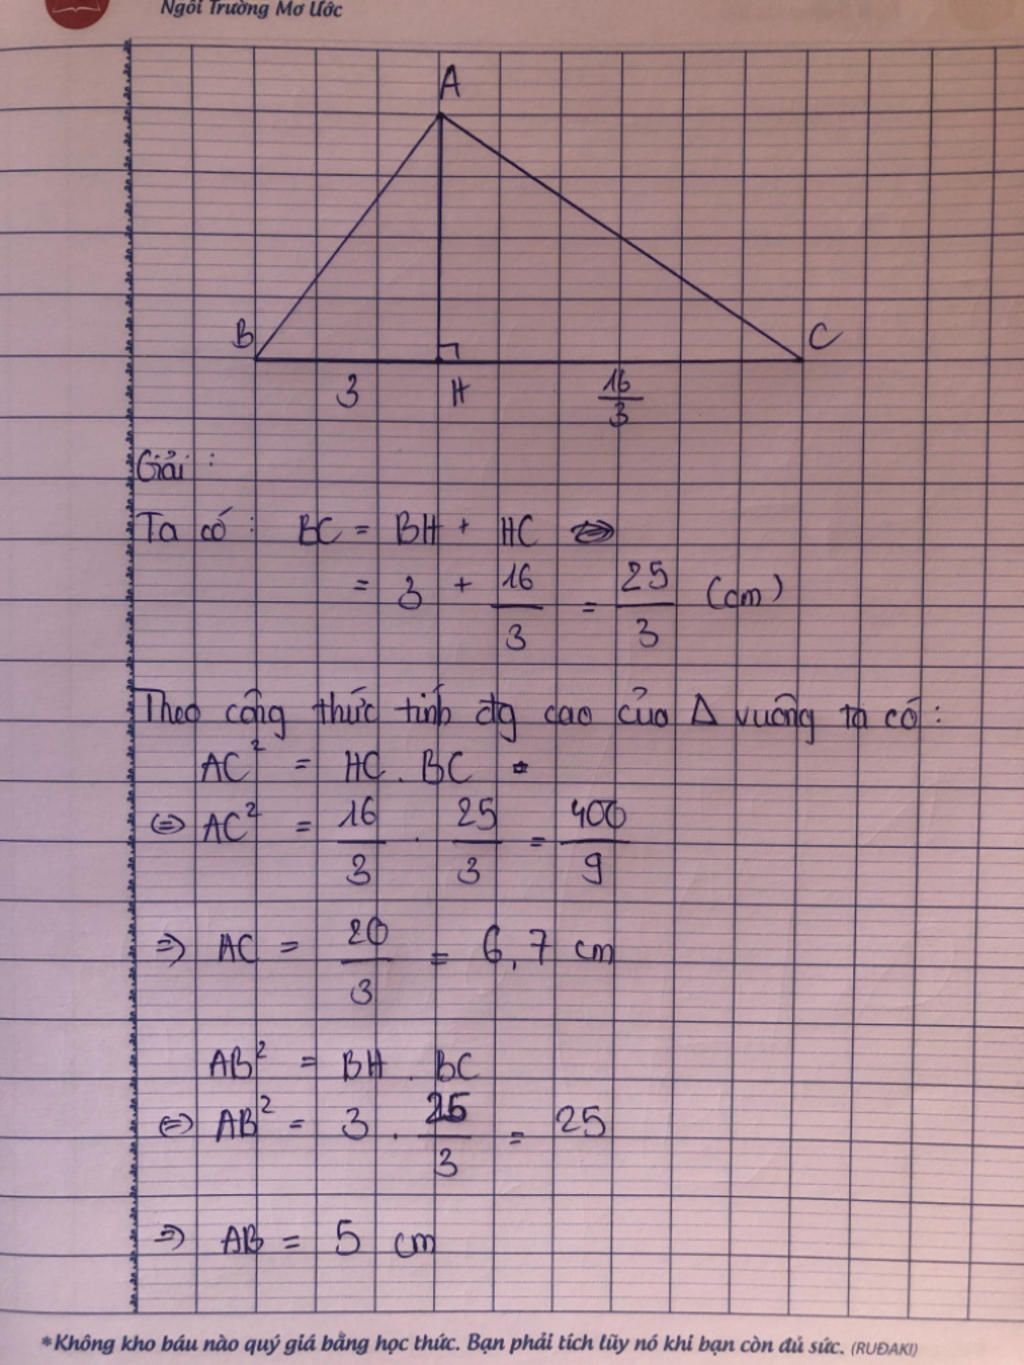 Ngôi Trường Mơ Ước
A
B
C
3 H 16/3
Giải :
Ta có : BC = BH + HC
= 3 + 16/3 = 25/3 (cm)
Theo công thức tính đg cao của Δ vuông ta có :
AC² = HC . BC
⇔ AC² = 16/3 . 25/3 = 400/9
⇒ AC = 20/3 = 6,7 cm
AB² = BH . BC
⇔ AB² = 3 . 25/3 = 25
⇒ AB = 5 cm
*Không kho báu nào quý giá bằng học thức. Bạn phải tích lũy nó khi bạn còn đủ sức. (RUĐAKI)